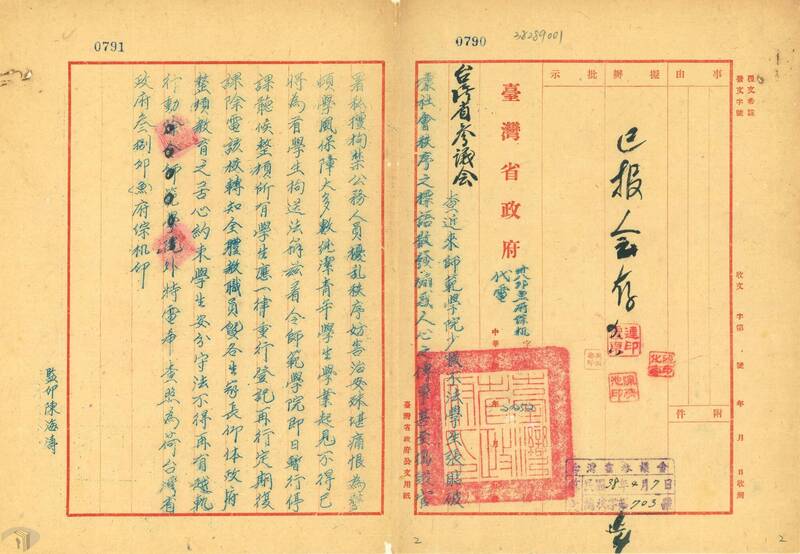 0791
0790
38289001
事由
擬辦
批示
附件
來文字號
收文 字第 號 年 月 日收到
已报會存
臺灣省政府
代電
台灣省參議会
中華
年
月
查近來師範學院少數不法學生張貼破
壞社會秩序之標語散發煽惑人心之傳單甚至搗毀官
署私擅拘禁公務人員擾乱秩序妨害治安殊堪痛恨為整
頓學風保障大多數純潔青年學生學業起見不得已
將為首學生拘送法辦茲着令師範學院即日暫行停
課聽候整頓所有學生應一律重行登記再行定期復
課除電該校轉知全體教職員暨各生家長仰体政府
整頓教育之苦心約束學生安分守法不得再有越軌
行動外特電希查照為荷台灣省
政府叁捌卯魚府綜机印
監印陳海濤
臺灣省政府公文用紙
台灣省參議會
民國38年4月7日
703
2
2